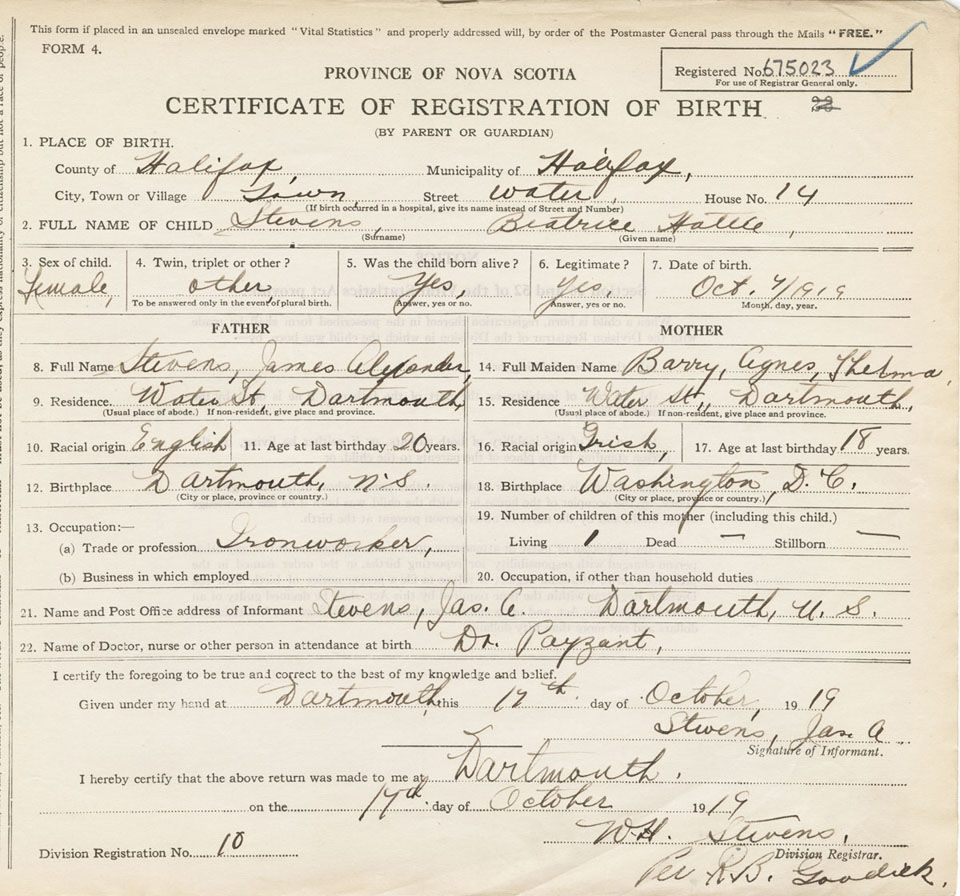 This form if placed in an unsealed envelope marked "Vital Statistics" and properly addressed will, by order of the Postmaster General pass through the Mails "FREE."
FORM 4.
PROVINCE OF NOVA SCOTIA
Registered No. 675023
For use of Registrar General only.
CERTIFICATE OF REGISTRATION OF BIRTH
(BY PARENT OR GUARDIAN)
1. PLACE OF BIRTH.
County of Halifax, Municipality of Halifax,
City, Town or Village Town Street Water, House No. 14
(If birth occurred in a hospital, give its name instead of Street and Number)
2. FULL NAME OF CHILD Stevens, Beatrice
(Surname) (Given name)
3. Sex of child. 4. Twin, triplet or other? 5. Was the child born alive? 6. Legitimate? 7. Date of birth.
Female, other, Yes, Yes, Oct. 4/1919
To be answered only in the event of plural birth. Answer, yes or no. Answer, yes or no. Month, day, year.
FATHER MOTHER
8. Full Name Stevens, James Alexander, 14. Full Maiden Name Barry, Agnes, Thelma,
9. Residence. Water St. Dartmouth 15. Residence Water St., Dartmouth,
(Usual place of abode.) If non-resident, give place and province. (Usual place of abode.) If non-resident, give place and province.
10. Racial origin English 11. Age at last birthday 20 years. 16. Racial origin Irish, 17. Age at last birthday 18 years.
12. Birthplace Dartmouth, N.S. 18. Birthplace Washington, D.C.
(City or place, province or country.) (City or place, province or country.)
13. Occupation:— 19. Number of children of this mother (including this child.)
(a) Trade or profession Ironworker, Living 1 Dead — Stillborn —
(b) Business in which employed 20. Occupation, if other than household duties
21. Name and Post Office address of Informant Stevens, Jas. A. Dartmouth, N.S.
22. Name of Doctor, nurse or other person in attendance at birth Dr. Payzant,
I certify the foregoing to be true and correct to the best of my knowledge and belief.
Given under my hand at Dartmouth, this 17th day of October, 1919
Stevens, Jas. A
Signature of Informant.
I hereby certify that the above return was made to me at Dartmouth.
on the 17th day of October 1919
W.H. Stevens,
Division Registration No. 10 Division Registrar.
Per R.B.